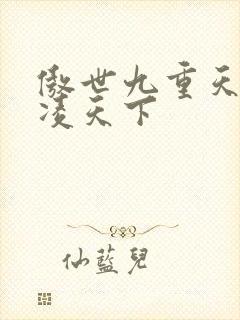 傲世九重天
凌天下
仙藍兒